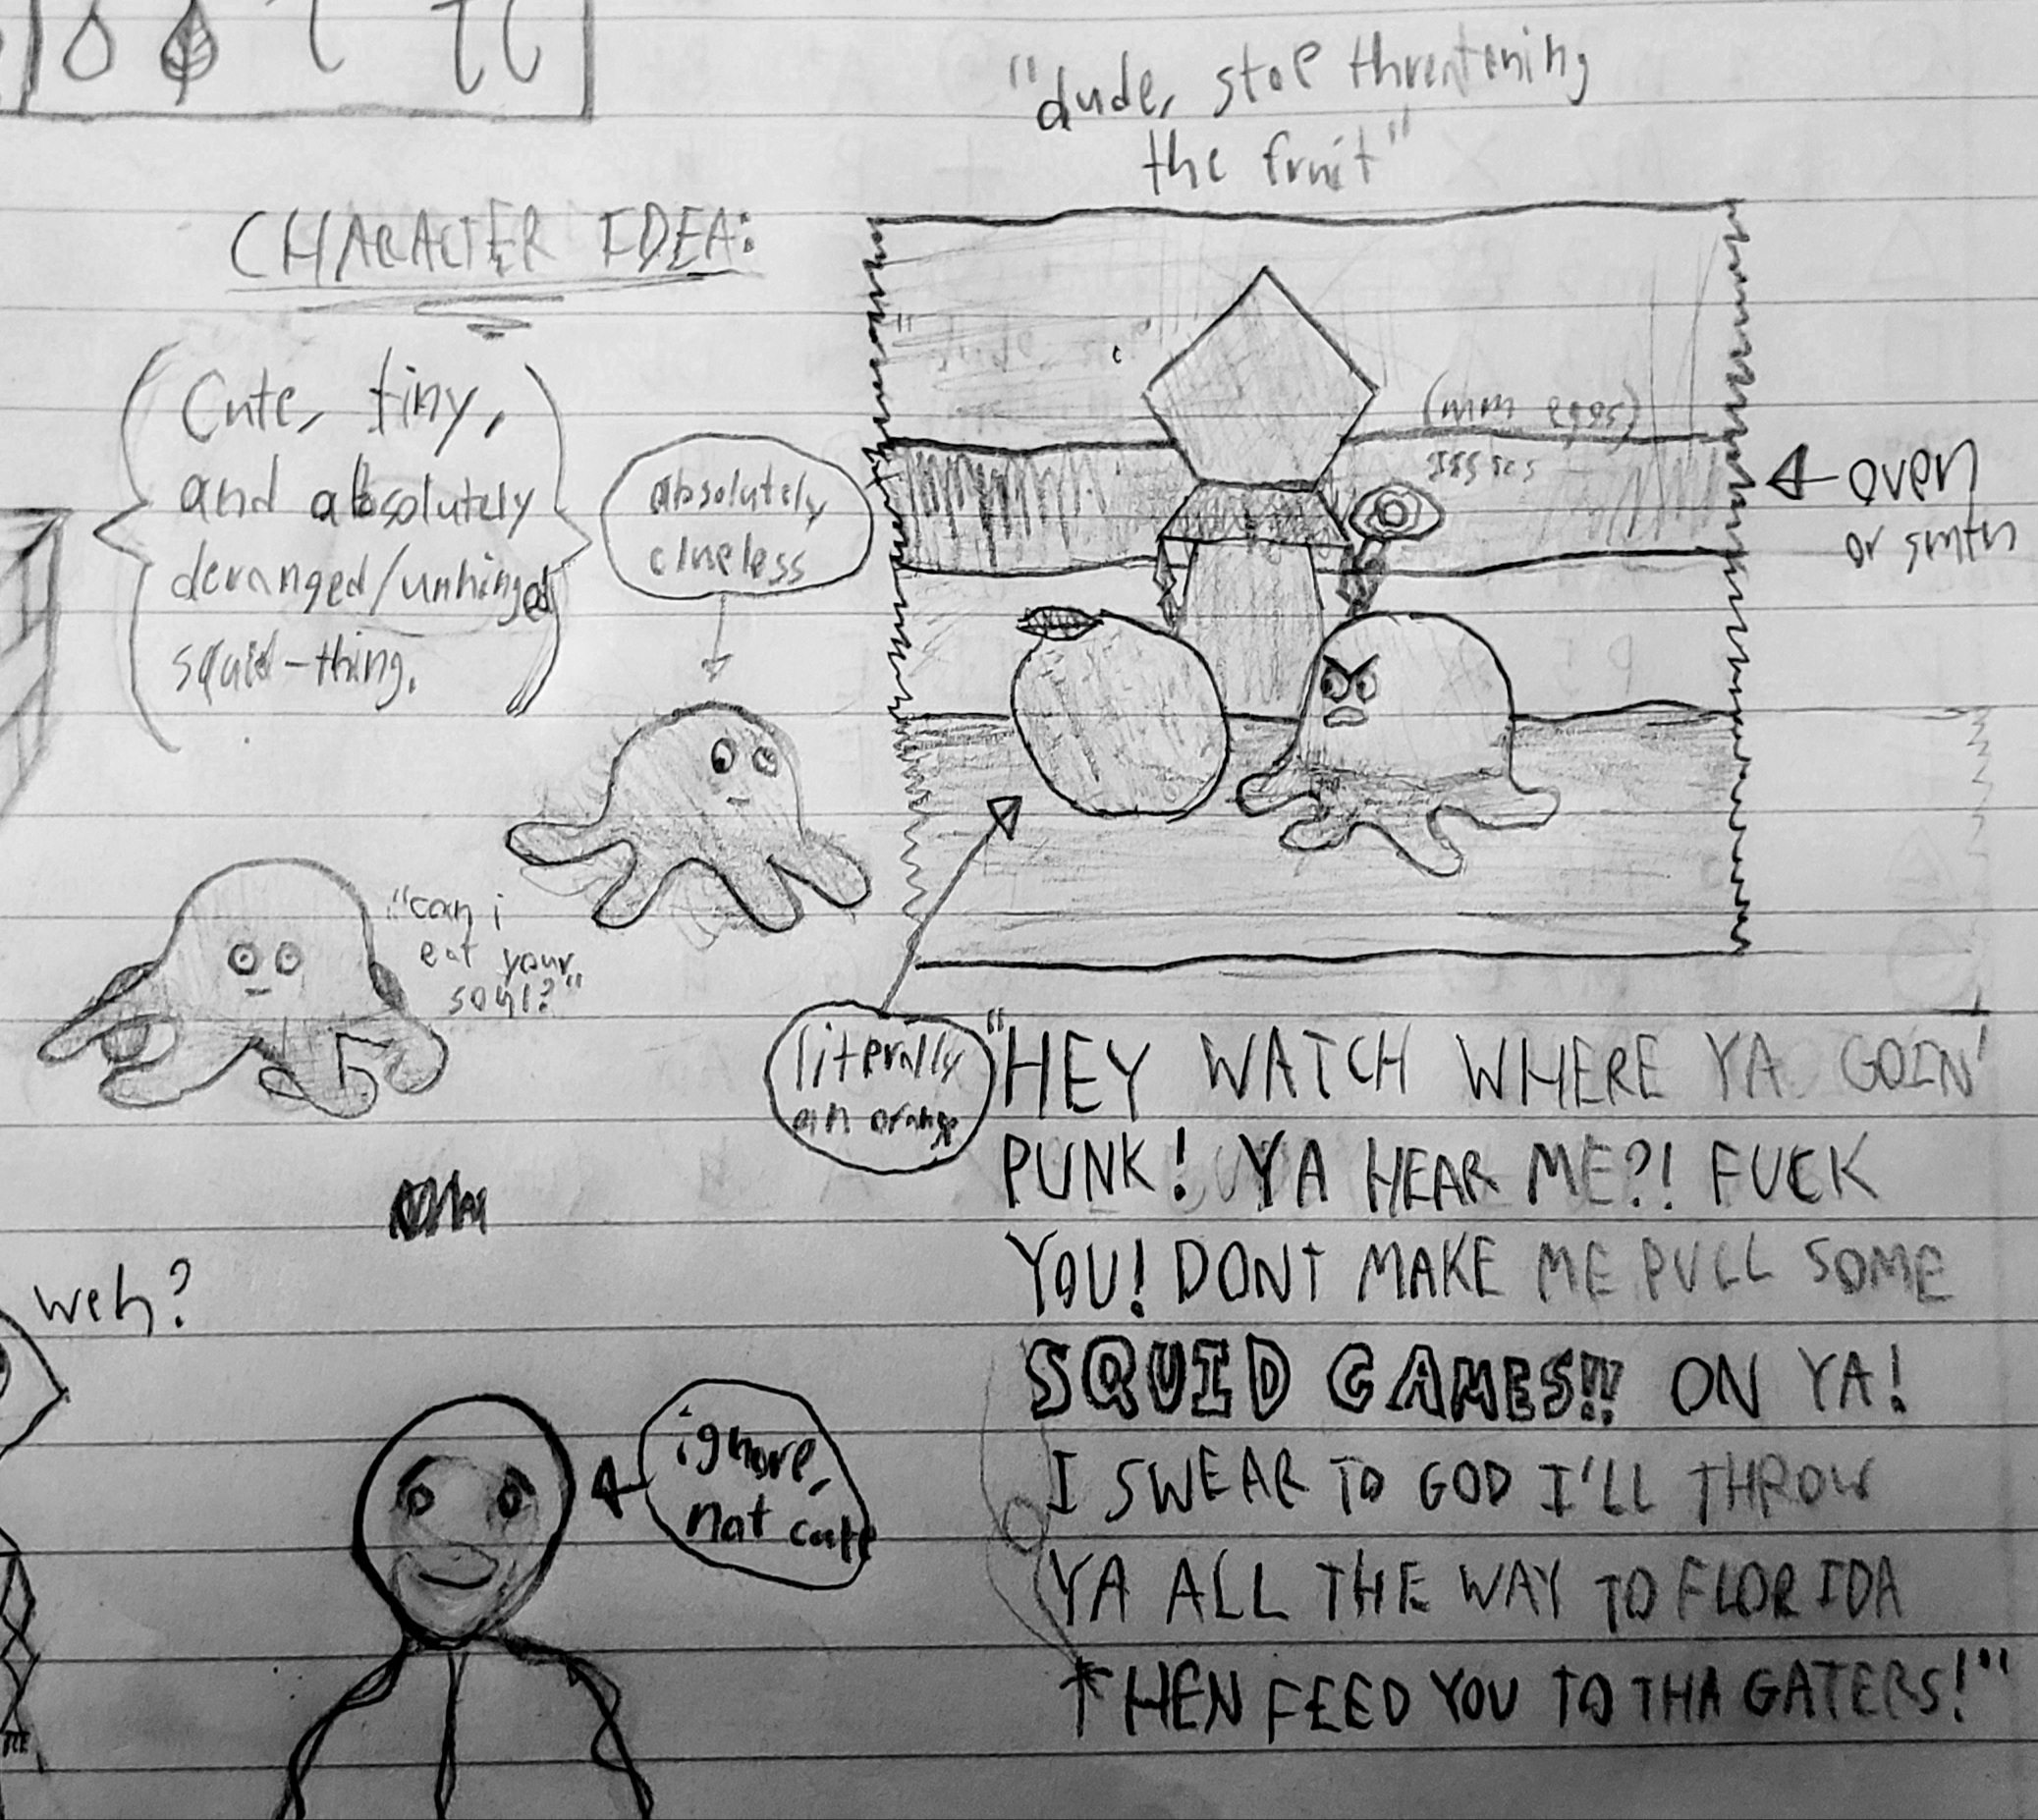 "dude, stop threntening
the fruit"
CHARACTER IDEA:
Cute, tiny,
and absolutely
deranged/unhinged
squid-thing.
absolutely
clueless
(mm eggs)
oven
or smth
"can i
eat your
soul?"
literally
an orange
"HEY WATCH WHERE YA GOIN'
PUNK! YA HEAR ME?! FUCK
YOU! DONT MAKE ME PULL SOME
SQUID GAMES!! ON YA!
I SWEAR TO GOD I'LL THROW
YA ALL THE WAY TO FLORIDA
THEN FEED YOU TO THA GATERS!"
weh?
ignore,
not cute